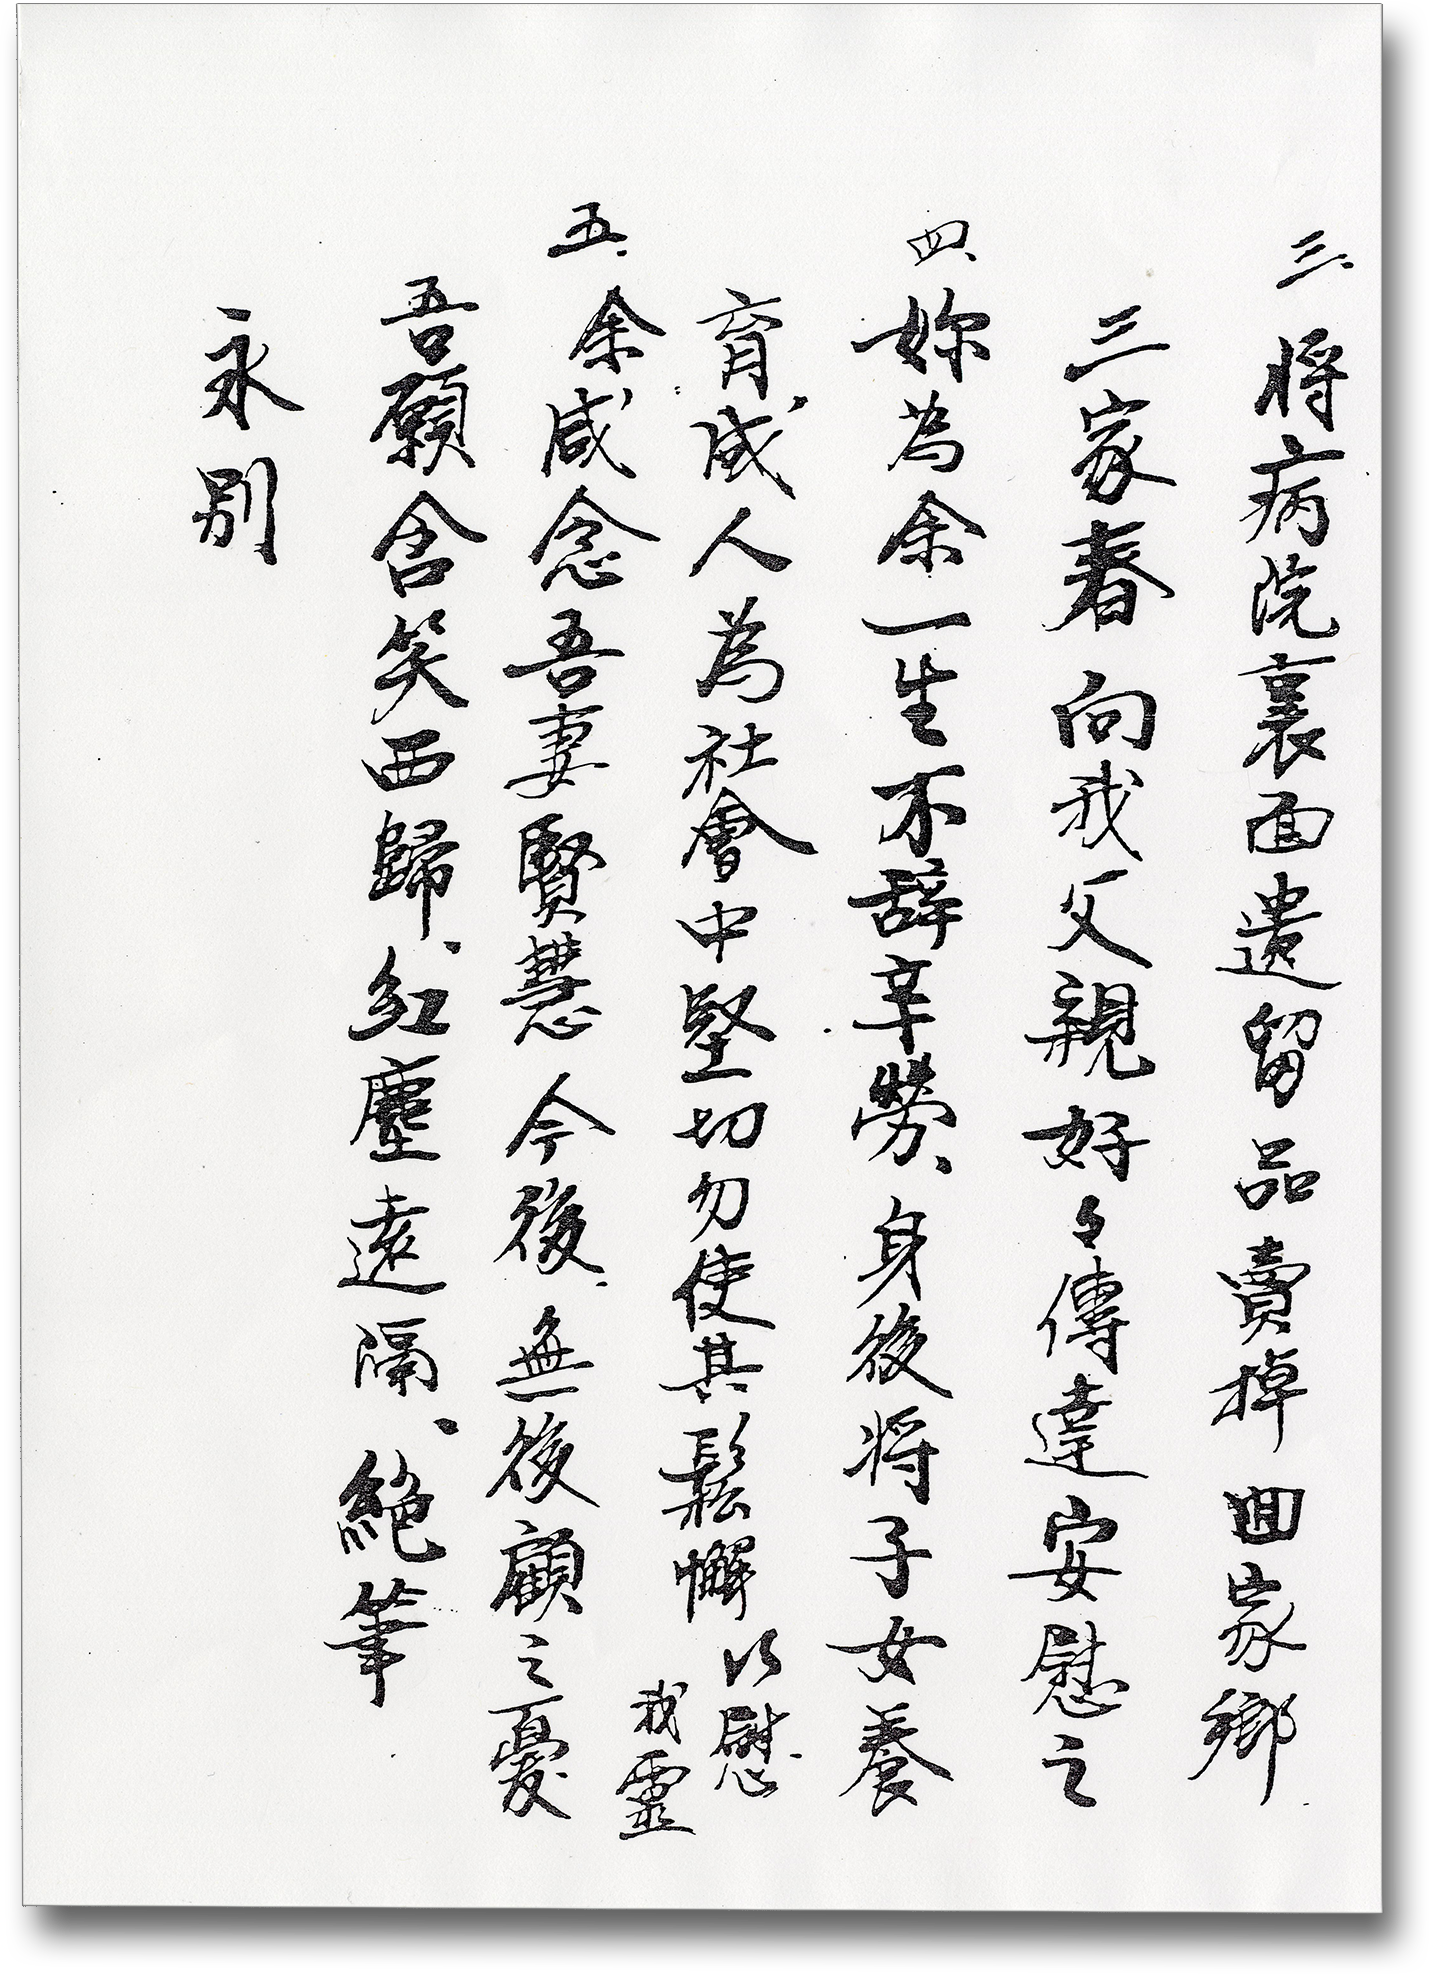 三、將病院裏面遺留品賣掉回家鄉
三家春向我父親好々傳達安慰之
四、妳為余一生不辞辛勞、身後將子女養
育成人為社會中堅切勿使其鬆懈以慰
我靈
五、余感念吾妻賢慧今後、無後顧之憂
吾願含笑西歸、紅塵遠隔、絕筆
永別